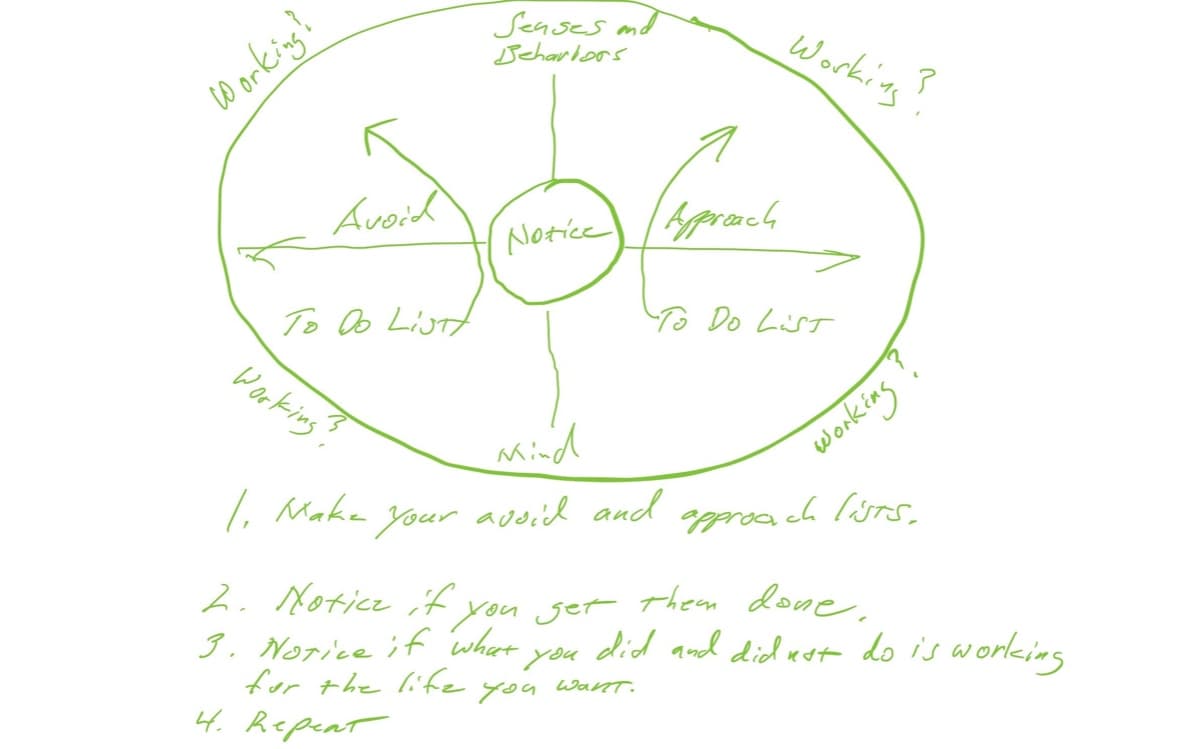 Senses and
Behaviors
Working?
Working?
Avoid
Notice
Approach
To Do List
To Do List
Working?
Working?
Mind
1. Make your avoid and approach lists.
2. Notice if you get them done.
3. Notice if what you did and did not do is working
for the life you want.
4. Repeat